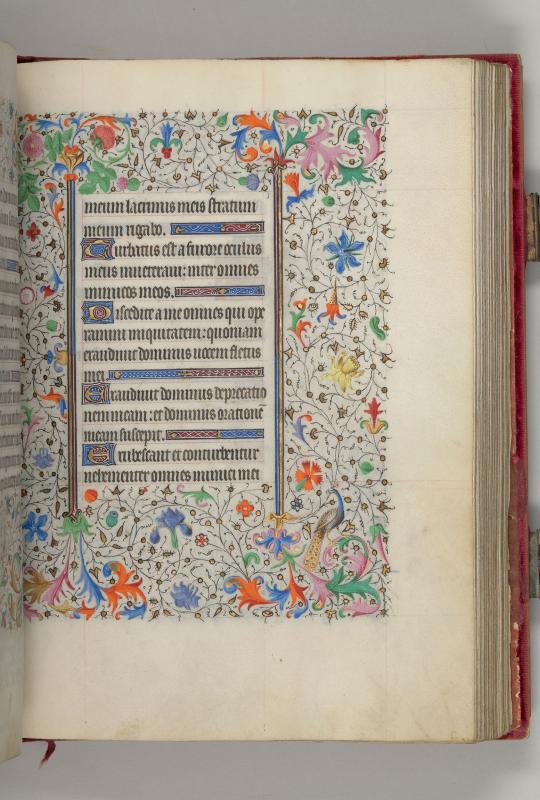 meum lacrimis meis stratum
meum rigabo.
Turbatus est a furore oculus
meus inveteravi: inter omnes
inimicos meos.
Discedite a me omnes qui ope
ramini iniquitatem: quoniam
exaudivit dominus vocem fletus
mei.
Exaudivit dominus deprecatio
nem meam: et dominus orationē
meam suscepit.
Erubescant et conturbentur
vehementer omnes inimici mei